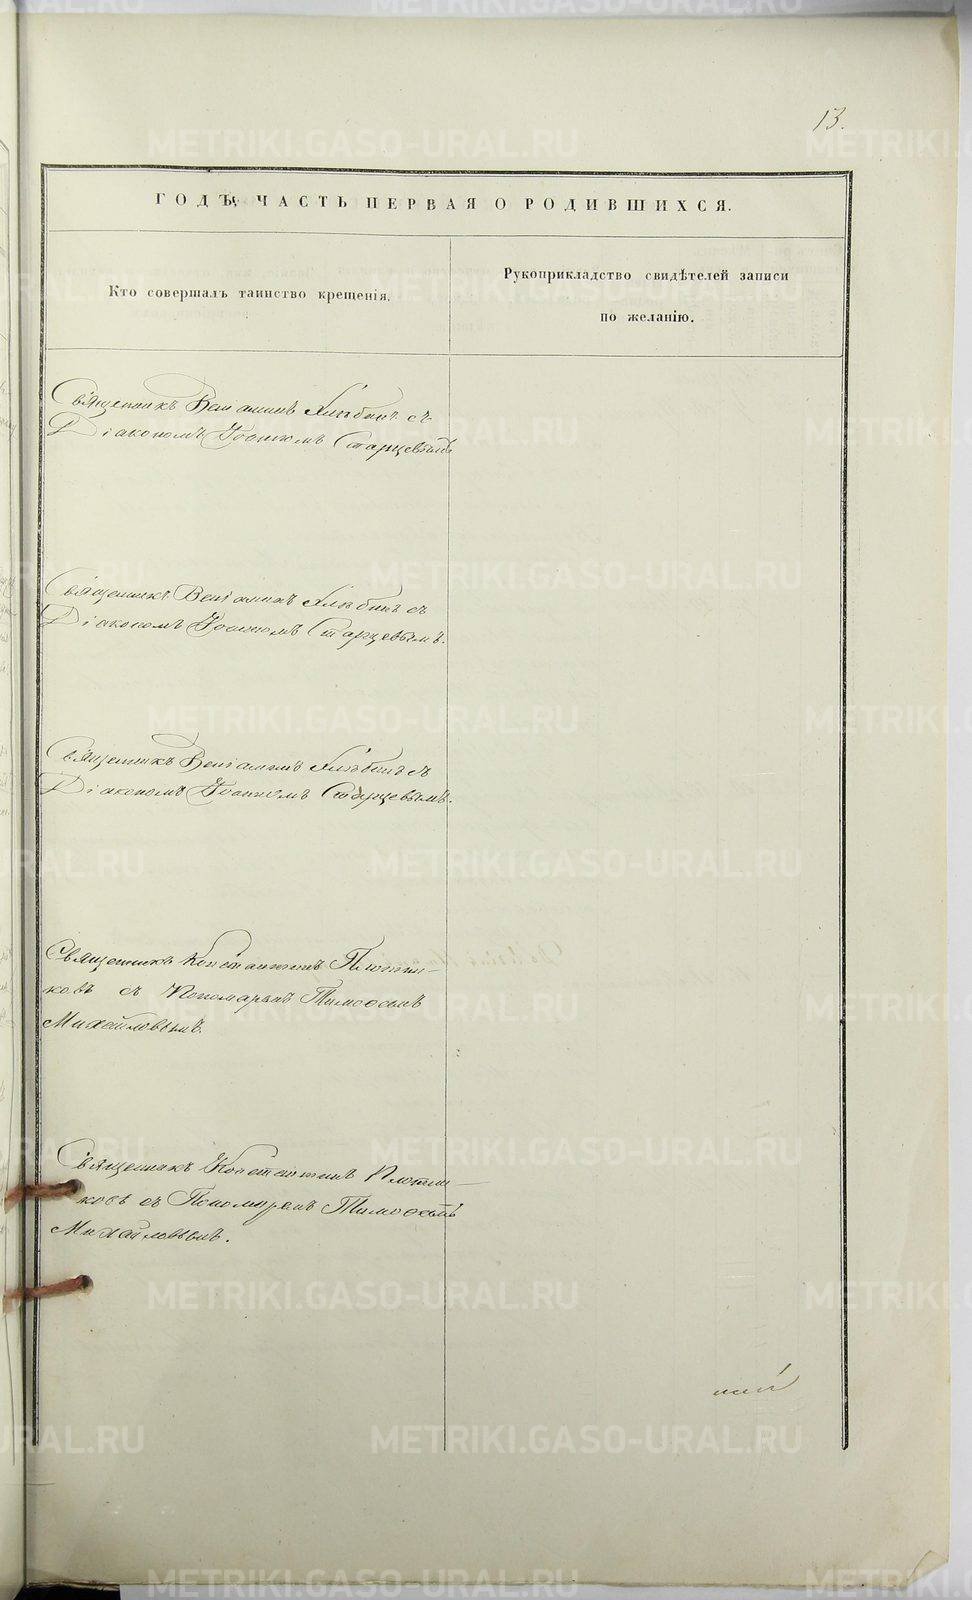 13.
ГОДЪ, ЧАСТЬ ПЕРВАЯ О РОДИВШИХСЯ.
Кто совершалъ таинство крещенія.
Рукоприкладство свидѣтелей записи
по желанію.
Священникъ Веніаминъ съ
Діакономъ Іоанномъ Старцевымъ
Священникъ Веніаминъ съ
Діакономъ Іоанномъ Старцевымъ.
Священникъ Веніаминъ съ
Діакономъ Іоанномъ Старцевымъ.
Священникъ Константинъ Плотни-
ковъ съ Пономаремъ Тимоѳеемъ
Михайловымъ.
Священникъ Константинъ Плотни-
ковъ съ Пономаремъ Тимоѳеемъ
Михайловымъ.
METRIKI.GASO-URAL.RU